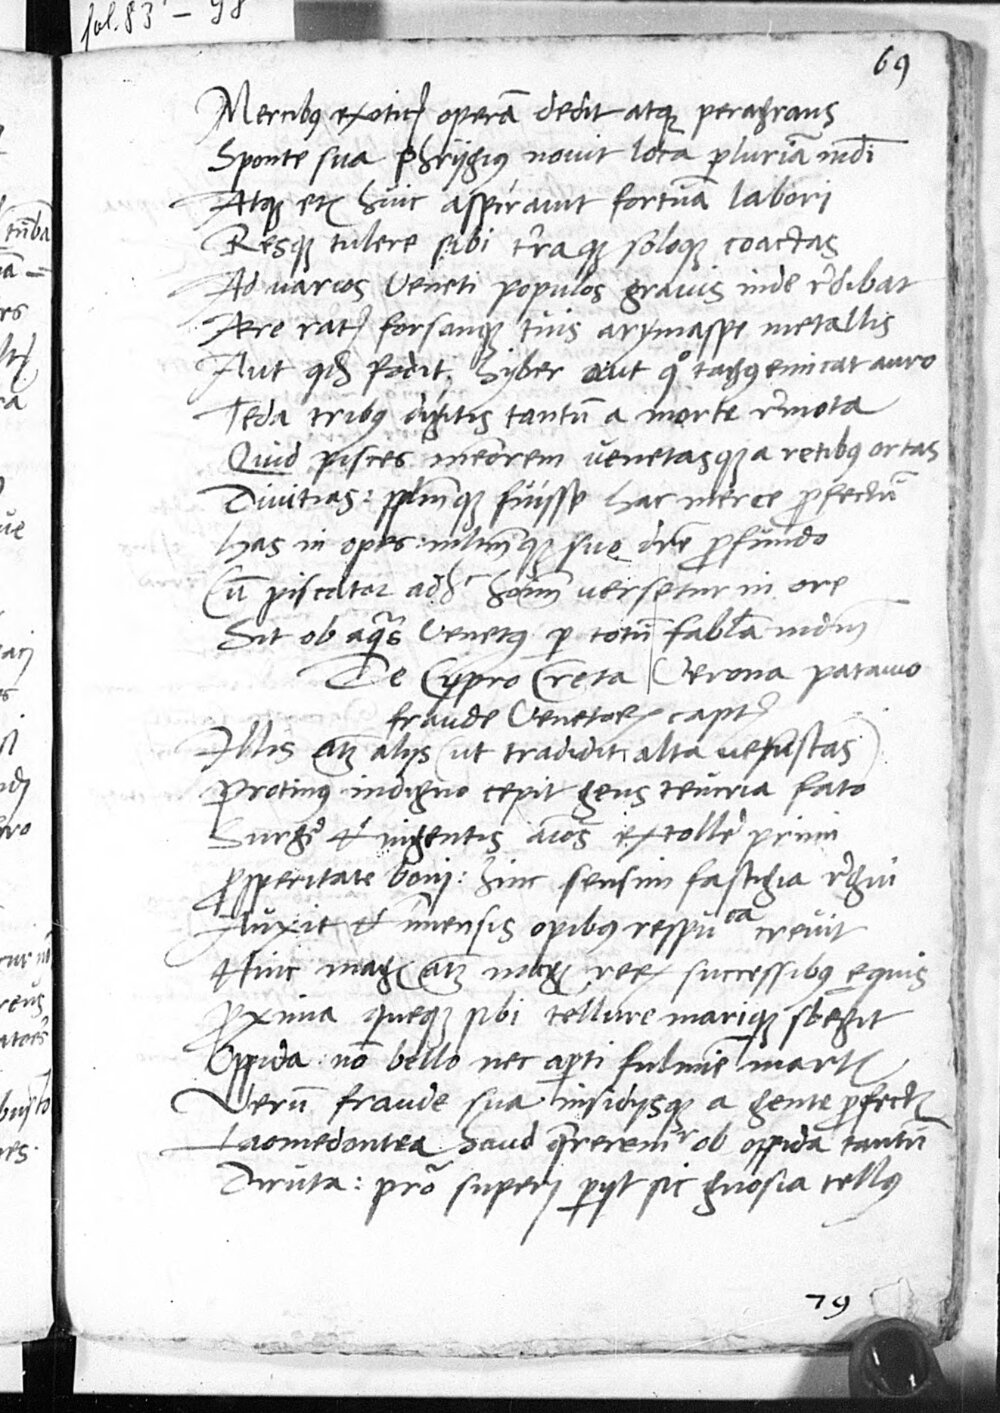 fol. 83 - 98
69
Mercibꝰ exoticꝭ operā dedit atqꝫ peragrans
Sponte sua phrijgiꝰ novit loca ꝑluriā mdi
Atqꝫ etꝫ huic aspiravit fortūa labori
Resqꝫ tulere sibi traqꝫ soloqꝫ coactas
Ad varios Veneti populos gravis inde rdibat
Aere ratꝭ forsanqꝫ tuis arymaspe metallis
Aut qd fodit hyber aut qͦ tagꝰ emicat auro
Teda tribꝰ digitis tantū a morte rmota
Quid pisces meorem venetasqꝫ a retibꝰ ortas
Divitias: plimqꝫ fuisse hac merce ꝓfectū
has in opes: sue dre ꝓfundo
Cū piscator adhͨ hoim versetur in ore
Sit ob aqͣs Venetꝰ ꝑ totū fabla mdm
De Cypro Creta Verona patavio
fraude Venetoꝝ captꝭ
Illis atqꝫ alijs (ut tradidit alta vetustas)
Protinꝰ indigno cepit gens teucria fato
Surgẽ & ingentis aios extolle primi
ꝓsperitate boni: hinc sensim fastigia rgni
Auxit & imensis opibꝰ respuca crevit
Hinc magꝭ atqꝫ magꝭ reꝝ successibꝰ equis
ꝓxima queqꝫ sibi tellure mariqꝫ sbegit
Oppida: nō bello nec apti fulmie martꝭ
Verū fraude sua insidijsqꝫ a gente ꝓfectꝭ
Laomedontea haud qrerenr ob oppida tantū
Diruta: prō superi ꝑijt sic gnosia tellꝰ
79